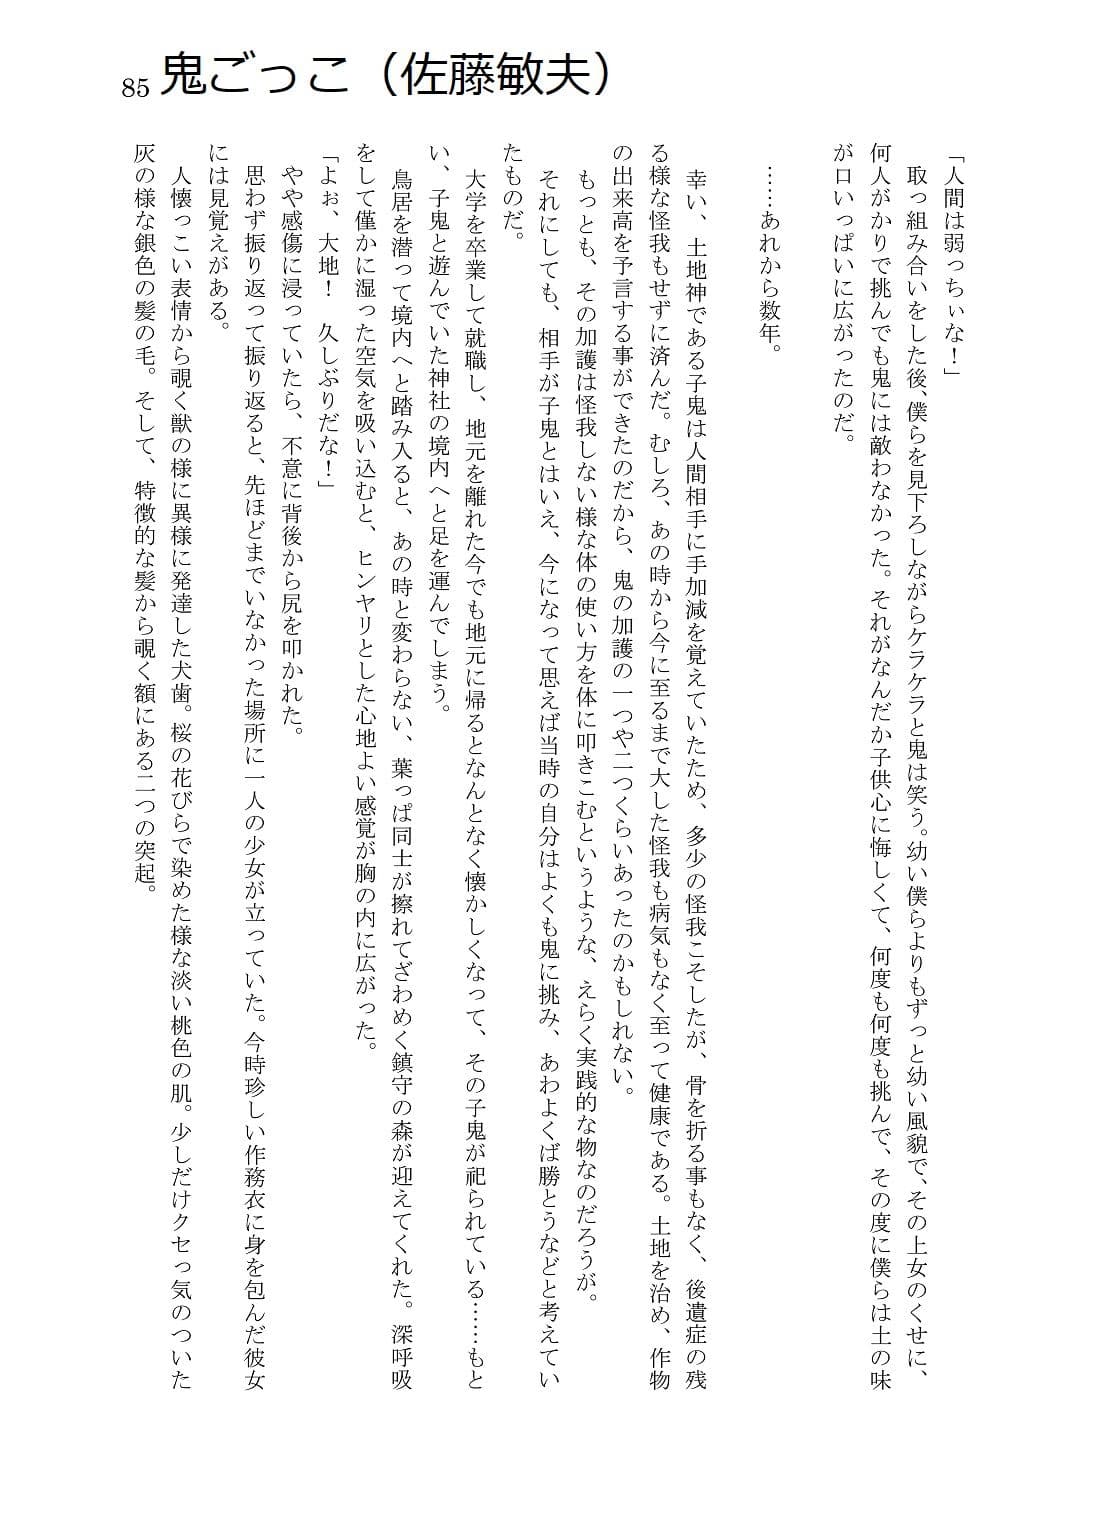 85 鬼ごっこ（佐藤敏夫）
「人間は弱っちぃな！」
　取っ組み合いをした後、僕らを見下ろしながらケラケラと鬼は笑う。幼い僕らよりもずっと幼い風貌で、その上女のくせに、
何人がかりで挑んでも鬼には敵わなかった。それがなんだか子供心に悔しくて、何度も何度も挑んで、その度に僕らは土の味
が口いっぱいに広がったのだ。
……あれから数年。
　幸い、土地神である子鬼は人間相手に手加減を覚えていたため、多少の怪我こそしたが、骨を折る事もなく、後遺症の残
る様な怪我もせずに済んだ。むしろ、あの時から今に至るまで大した怪我も病気もなく至って健康である。土地を治め、作物
の出来高を予言する事ができたのだから、鬼の加護の一つや二つくらいあったのかもしれない。
　もっとも、その加護は怪我しない様な体の使い方を体に叩きこむというような、えらく実践的な物なのだろうが。
　それにしても、相手が子鬼とはいえ、今になって思えば当時の自分はよくも鬼に挑み、あわよくば勝とうなどと考えてい
たものだ。
　大学を卒業して就職し、地元を離れた今でも地元に帰るとなんとなく懐かしくなって、その子鬼が祀られている……もと
い、子鬼と遊んでいた神社の境内へと足を運んでしまう。
　鳥居を潜って境内へと踏み入ると、あの時と変わらない、葉っぱ同士が擦れてざわめく鎮守の森が迎えてくれた。深呼吸
をして僅かに湿った空気を吸い込むと、ヒンヤリとした心地よい感覚が胸の内に広がった。
「よぉ、大地！　久しぶりだな！」
　やや感傷に浸っていたら、不意に背後から尻を叩かれた。
　思わず振り返って振り返ると、先ほどまでいなかった場所に一人の少女が立っていた。今時珍しい作務衣に身を包んだ彼女
には見覚えがある。
　人懐っこい表情から覗く獣の様に異様に発達した犬歯。桜の花びらで染めた様な淡い桃色の肌。少しだけクセっ気のついた
灰の様な銀色の髪の毛。そして、特徴的な髪から覗く額にある二つの突起。